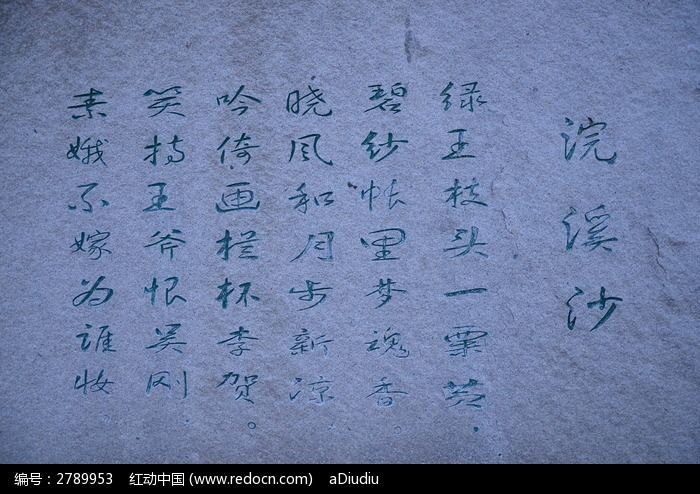 浣溪沙
绿玉枝头一粟黄。
碧纱帐里梦魂香。
晓风和月步新凉。
吟倚画栏怀李贺。
笑持玉斧恨吴刚。
素娥不嫁为谁妆。
编号：2789953 红动中国 (www.redocn.com) aDiudiu